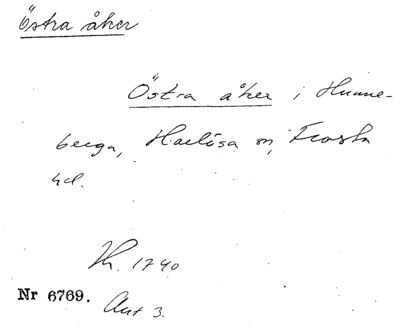 Östra åker
Östra åker i Hunne-
berga, Harlösa sn, Frosta
hd.
Kh. 1740
Nr 6769. Akt 3.